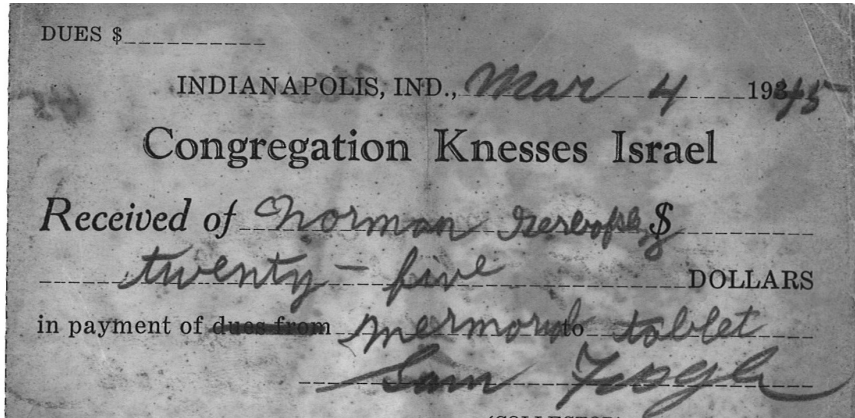 DUES $
INDIANAPOLIS, IND., Mar 4 1945
Congregation Knesses Israel
Received of Norman $
twenty-five DOLLARS
in payment of dues from mermorial to tablet
Sam